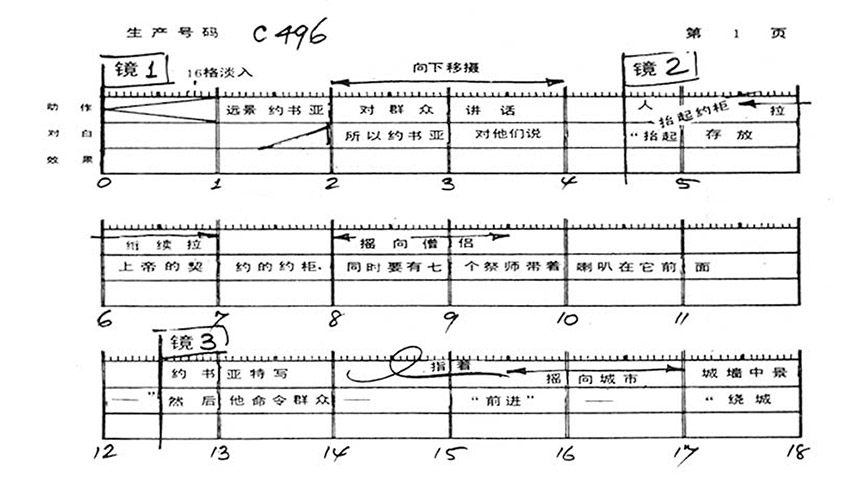 生产号码 C496 第 1 页
镜1 16格淡入 向下移摄 镜2
动作 远景 约书亚 对群众 讲话 人 抬起约柜 拉
对白 所以约书亚 对他们说 “抬起 存放
效果
0 1 2 3 4 5
继续拉 摇向僧侣
上帝的契 约的约柜. 同时要有七 个祭师带着 喇叭在它前 面
6 7 8 9 10 11
镜3
约书亚特写 指着 摇向城市 城墙中景
——” 然后他命令群众 —— “前进” —— “绕城
12 13 14 15 16 17 18